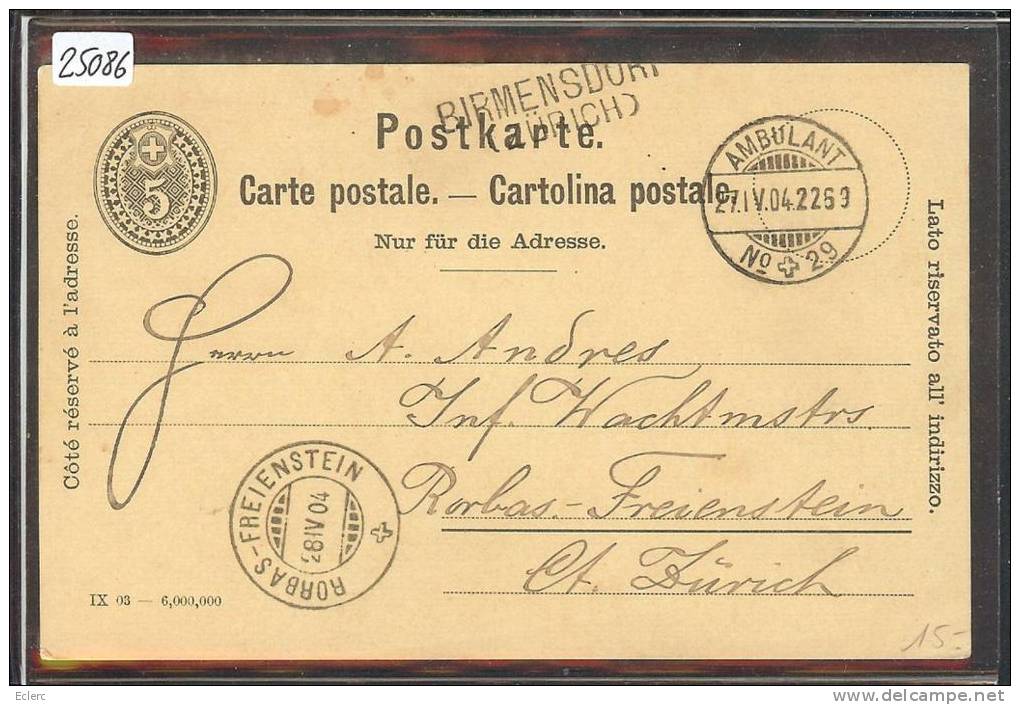 25086
BIRMENSDORF
(ZÜRICH)
Postkarte.
Carte postale. — Cartolina postale.
Nur für die Adresse.
5
AMBULANT
27.IV.04.22
No 29
Côté réservé à l'adresse.
Lato riservato all' indirizzo.
Herrn A. Andres
Inf. Wachtmstrs.
Rorbas-Freienstein
Ct. Zürich
RORBAS-FREIENSTEIN
28 IV 04
IX 03 — 6,000,000
15.-
Eclerc
www.delcampe.net